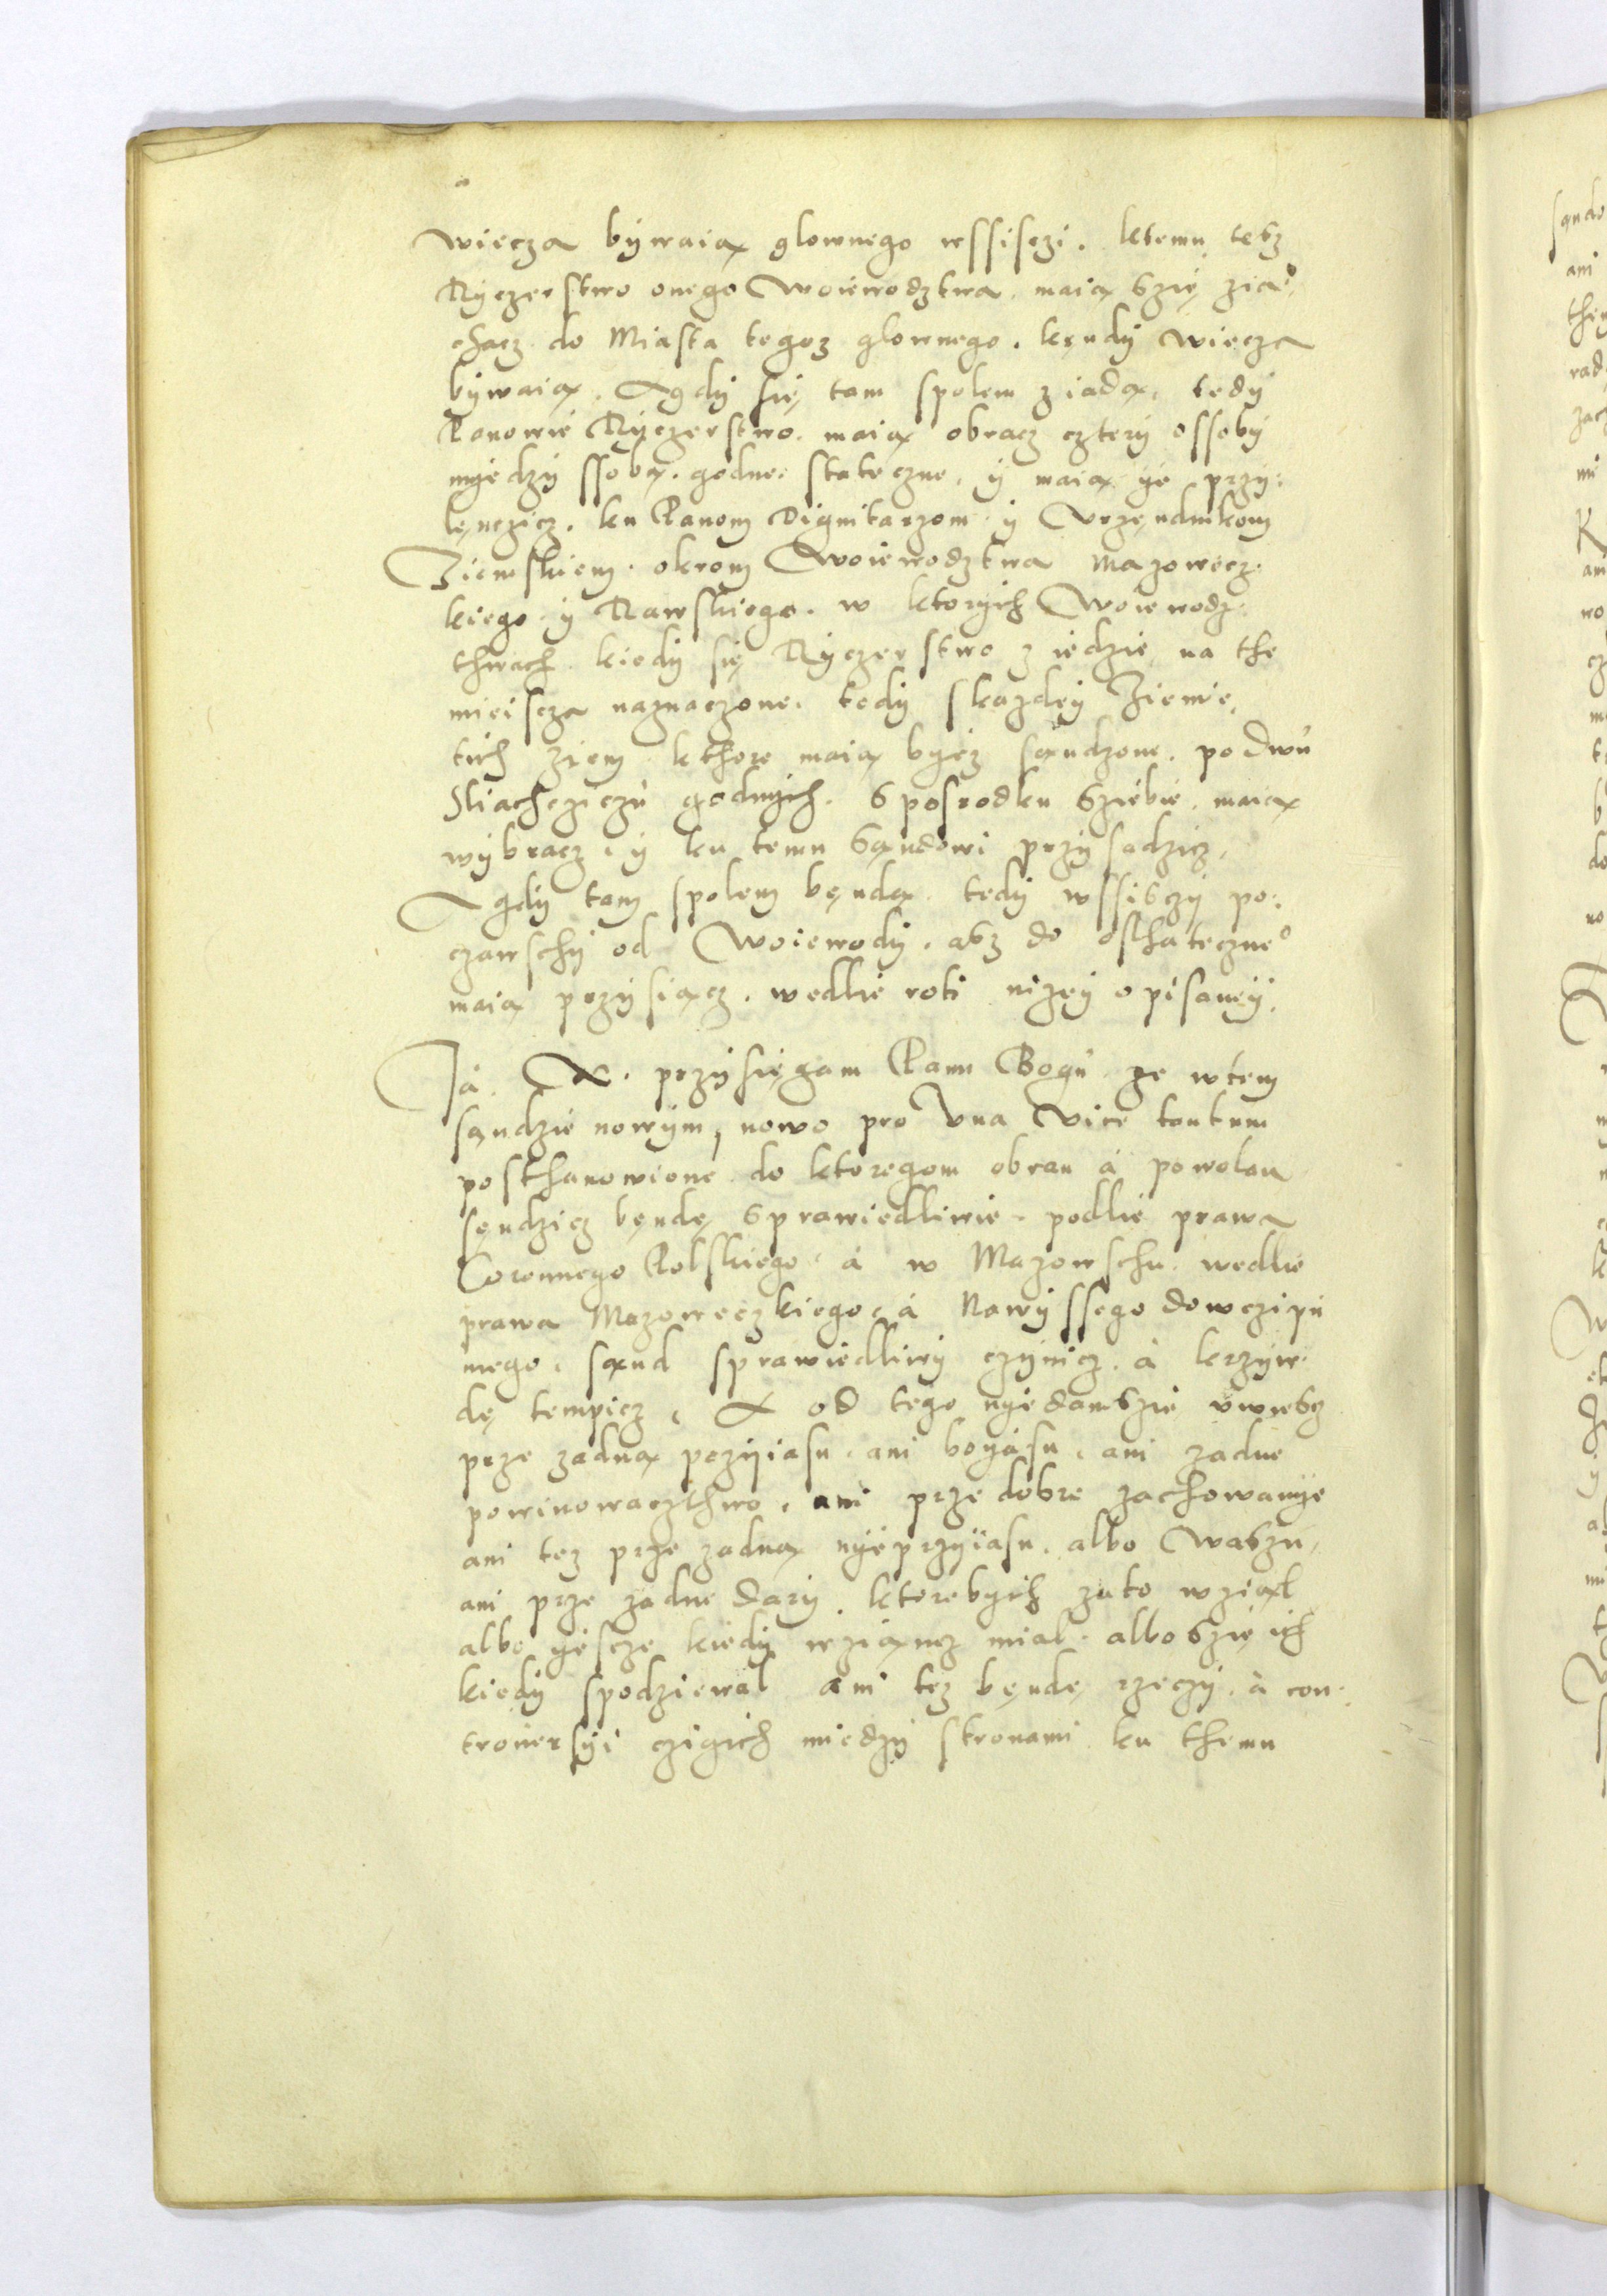 wiecza bywaią glownego wssisczi. ktemu tesz
Ryczerstwo onego Woiewodztwa maią szię zia:
chacz do Miasta tegoz glownego. kędy wiecza
bywaią. A gdy się tam spolem ziadą, tedy
Panowie Ryczerstwo. maią obracz cztery ossoby
myedzy ssobą. godne. stateczne. y maią ye przy:
lęnczicz. ku Panom Dignitarzom y Vrzędnikom
Ziemskiem. okrom Woiewodztwa Mazowecz:
kiego y Rawskiego. w ktorych Woiewodz:
thwach kiedy się Ryczerstwo ziedzie na the
mieiscza naznaczone. tedy skazdey Ziemie,
tich ziem kthore maią bycz sąndzone. po dwu
Sliachcziczu godnych. s posrodku sziebie. maią
wybracz, y ku temu sąndowi przysadzicz,
A gdy tam spolem bęndą tedy wssisczy po:
czawschy od Woiewody. asz do osthateczne°
maią przysiącz. wedlie roti nizey opisaney.
Já N. przysięgam Panu Bogu ze wtem
sęndzie nowym, nowo pro Vna Vice tantum
posthanowione do ktoregom obran á powolan
sęndzicz bęndę sprawiedliwie podlie prawa
Coronnego Polskiego á w Mazowschu wedlie
prawa Mazoweczkiego, á Nawyssego dowczipu
mego, sąnd sprawiedliwy czynicz á krzyw:
dę tempicz, A od tego nyedamszie uwiescz
prze zadną przyiasn, ani boyásn, ani zadne
powinowacthwo, ani prze dobre zachowanye
ani tez prze zadną nyeprzyiasn. albo Waszn,
ani prze zadne dary. ktorebych zato wziął
albo yescze kiedy wziąncz mial. albo szię ich
kiedy spodziewał ani tez bęndę rzeczy á con:
trouersyi czigich miedzy stronami ku themu